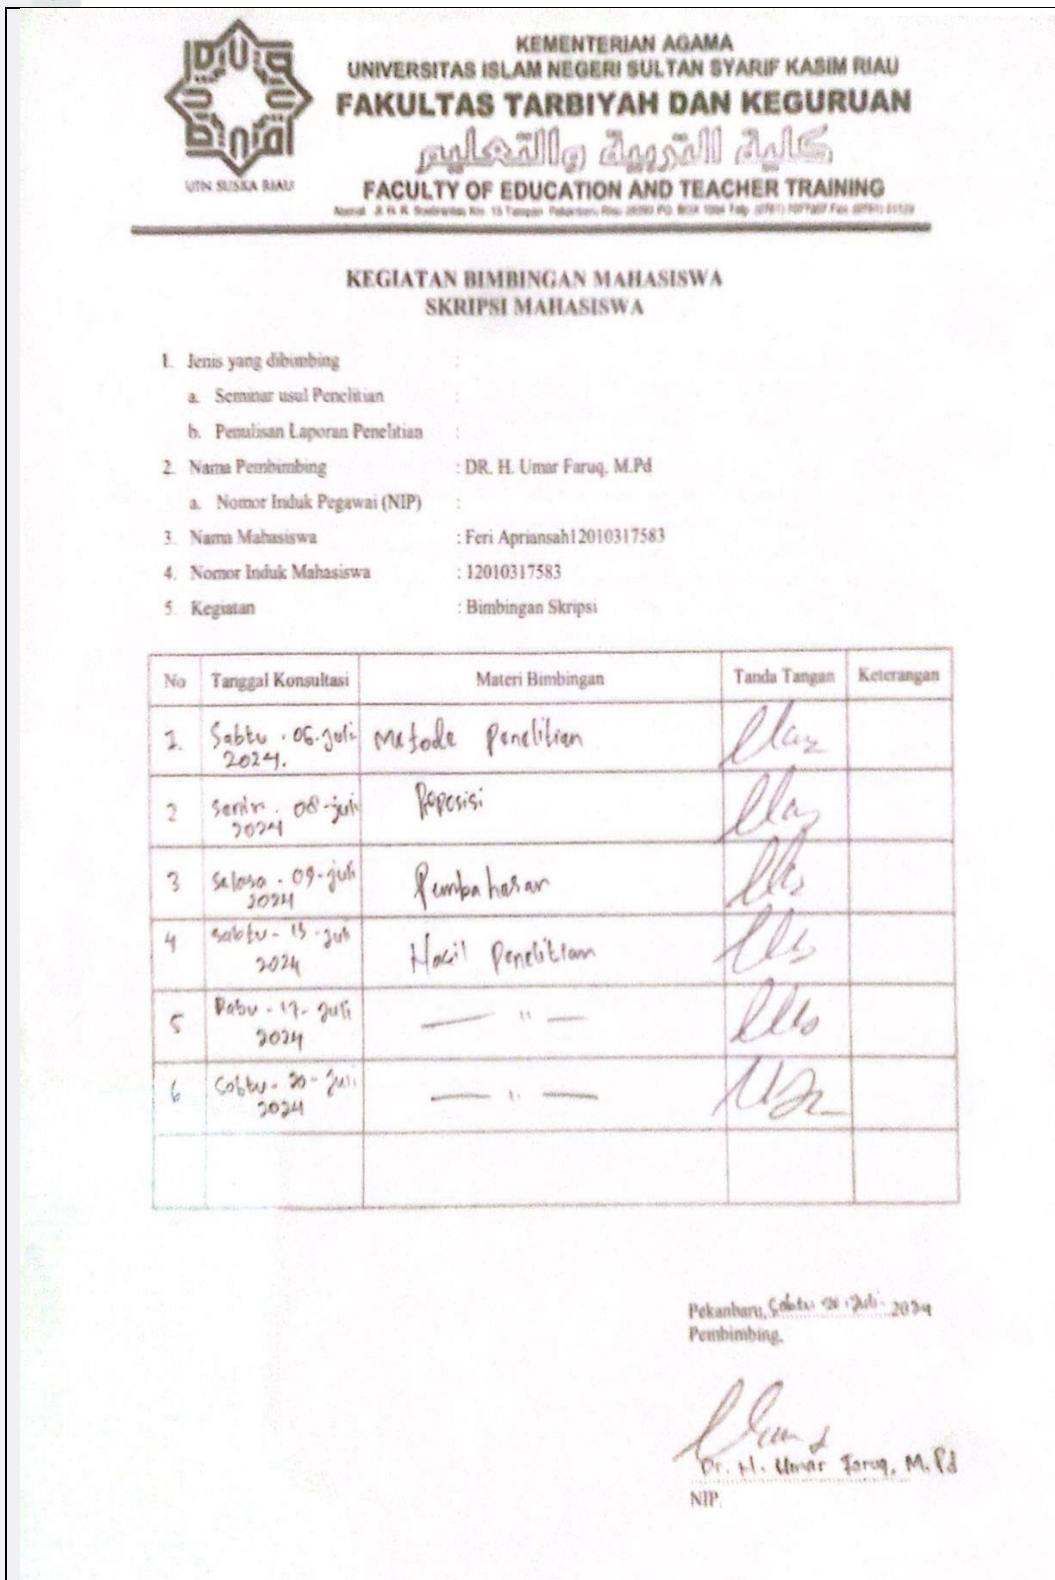 UIN SUSKA RIAU
KEMENTERIAN AGAMA
UNIVERSITAS ISLAM NEGERI SULTAN SYARIF KASIM RIAU
FAKULTAS TARBIYAH DAN KEGURUAN
كلية التربية والتعليم
FACULTY OF EDUCATION AND TEACHER TRAINING
Alamat Jl. H. R. Soebrantas Km. 15 Tampan Pekanbaru Riau PO. BOX 1004 Telp. Fax.
KEGIATAN BIMBINGAN MAHASISWA
SKRIPSI MAHASISWA
1. Jenis yang dibimbing :
a. Seminar usul Penelitian :
b. Penulisan Laporan Penelitian :
2. Nama Pembimbing : DR. H. Umar Faruq, M.Pd
a. Nomor Induk Pegawai (NIP) :
3. Nama Mahasiswa : Feri Apriansah12010317583
4. Nomor Induk Mahasiswa : 12010317583
5. Kegiatan : Bimbingan Skripsi
No Tanggal Konsultasi Materi Bimbingan Tanda Tangan Keterangan
1. Sabtu . 06 - juli 2024. Metode Penelitian
2 Senin . 08 - juli 2024
3 Selasa . 09 - juli 2024 Pembahasan
4 Sabtu - 13 - juli 2024 Hasil Penelitian
5 Rabu - 17 - juli 2024 — " —
6 Sabtu - 20 - juli 2024 — " —
Pekanbaru, Sabtu 20 - Juli - 2024
Pembimbing,
Dr. H. Umar Faruq, M.Pd
NIP.